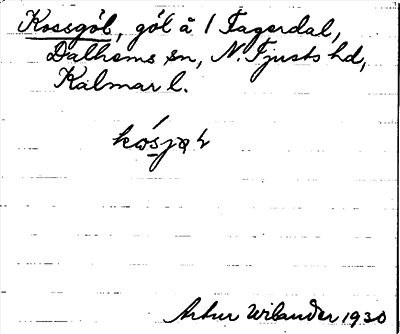 Kossgöl, göl å 1 Fagerdal,
Dalhems sn, N. Tjusts hd,
Kalmar l.
Artur Wilander 1930